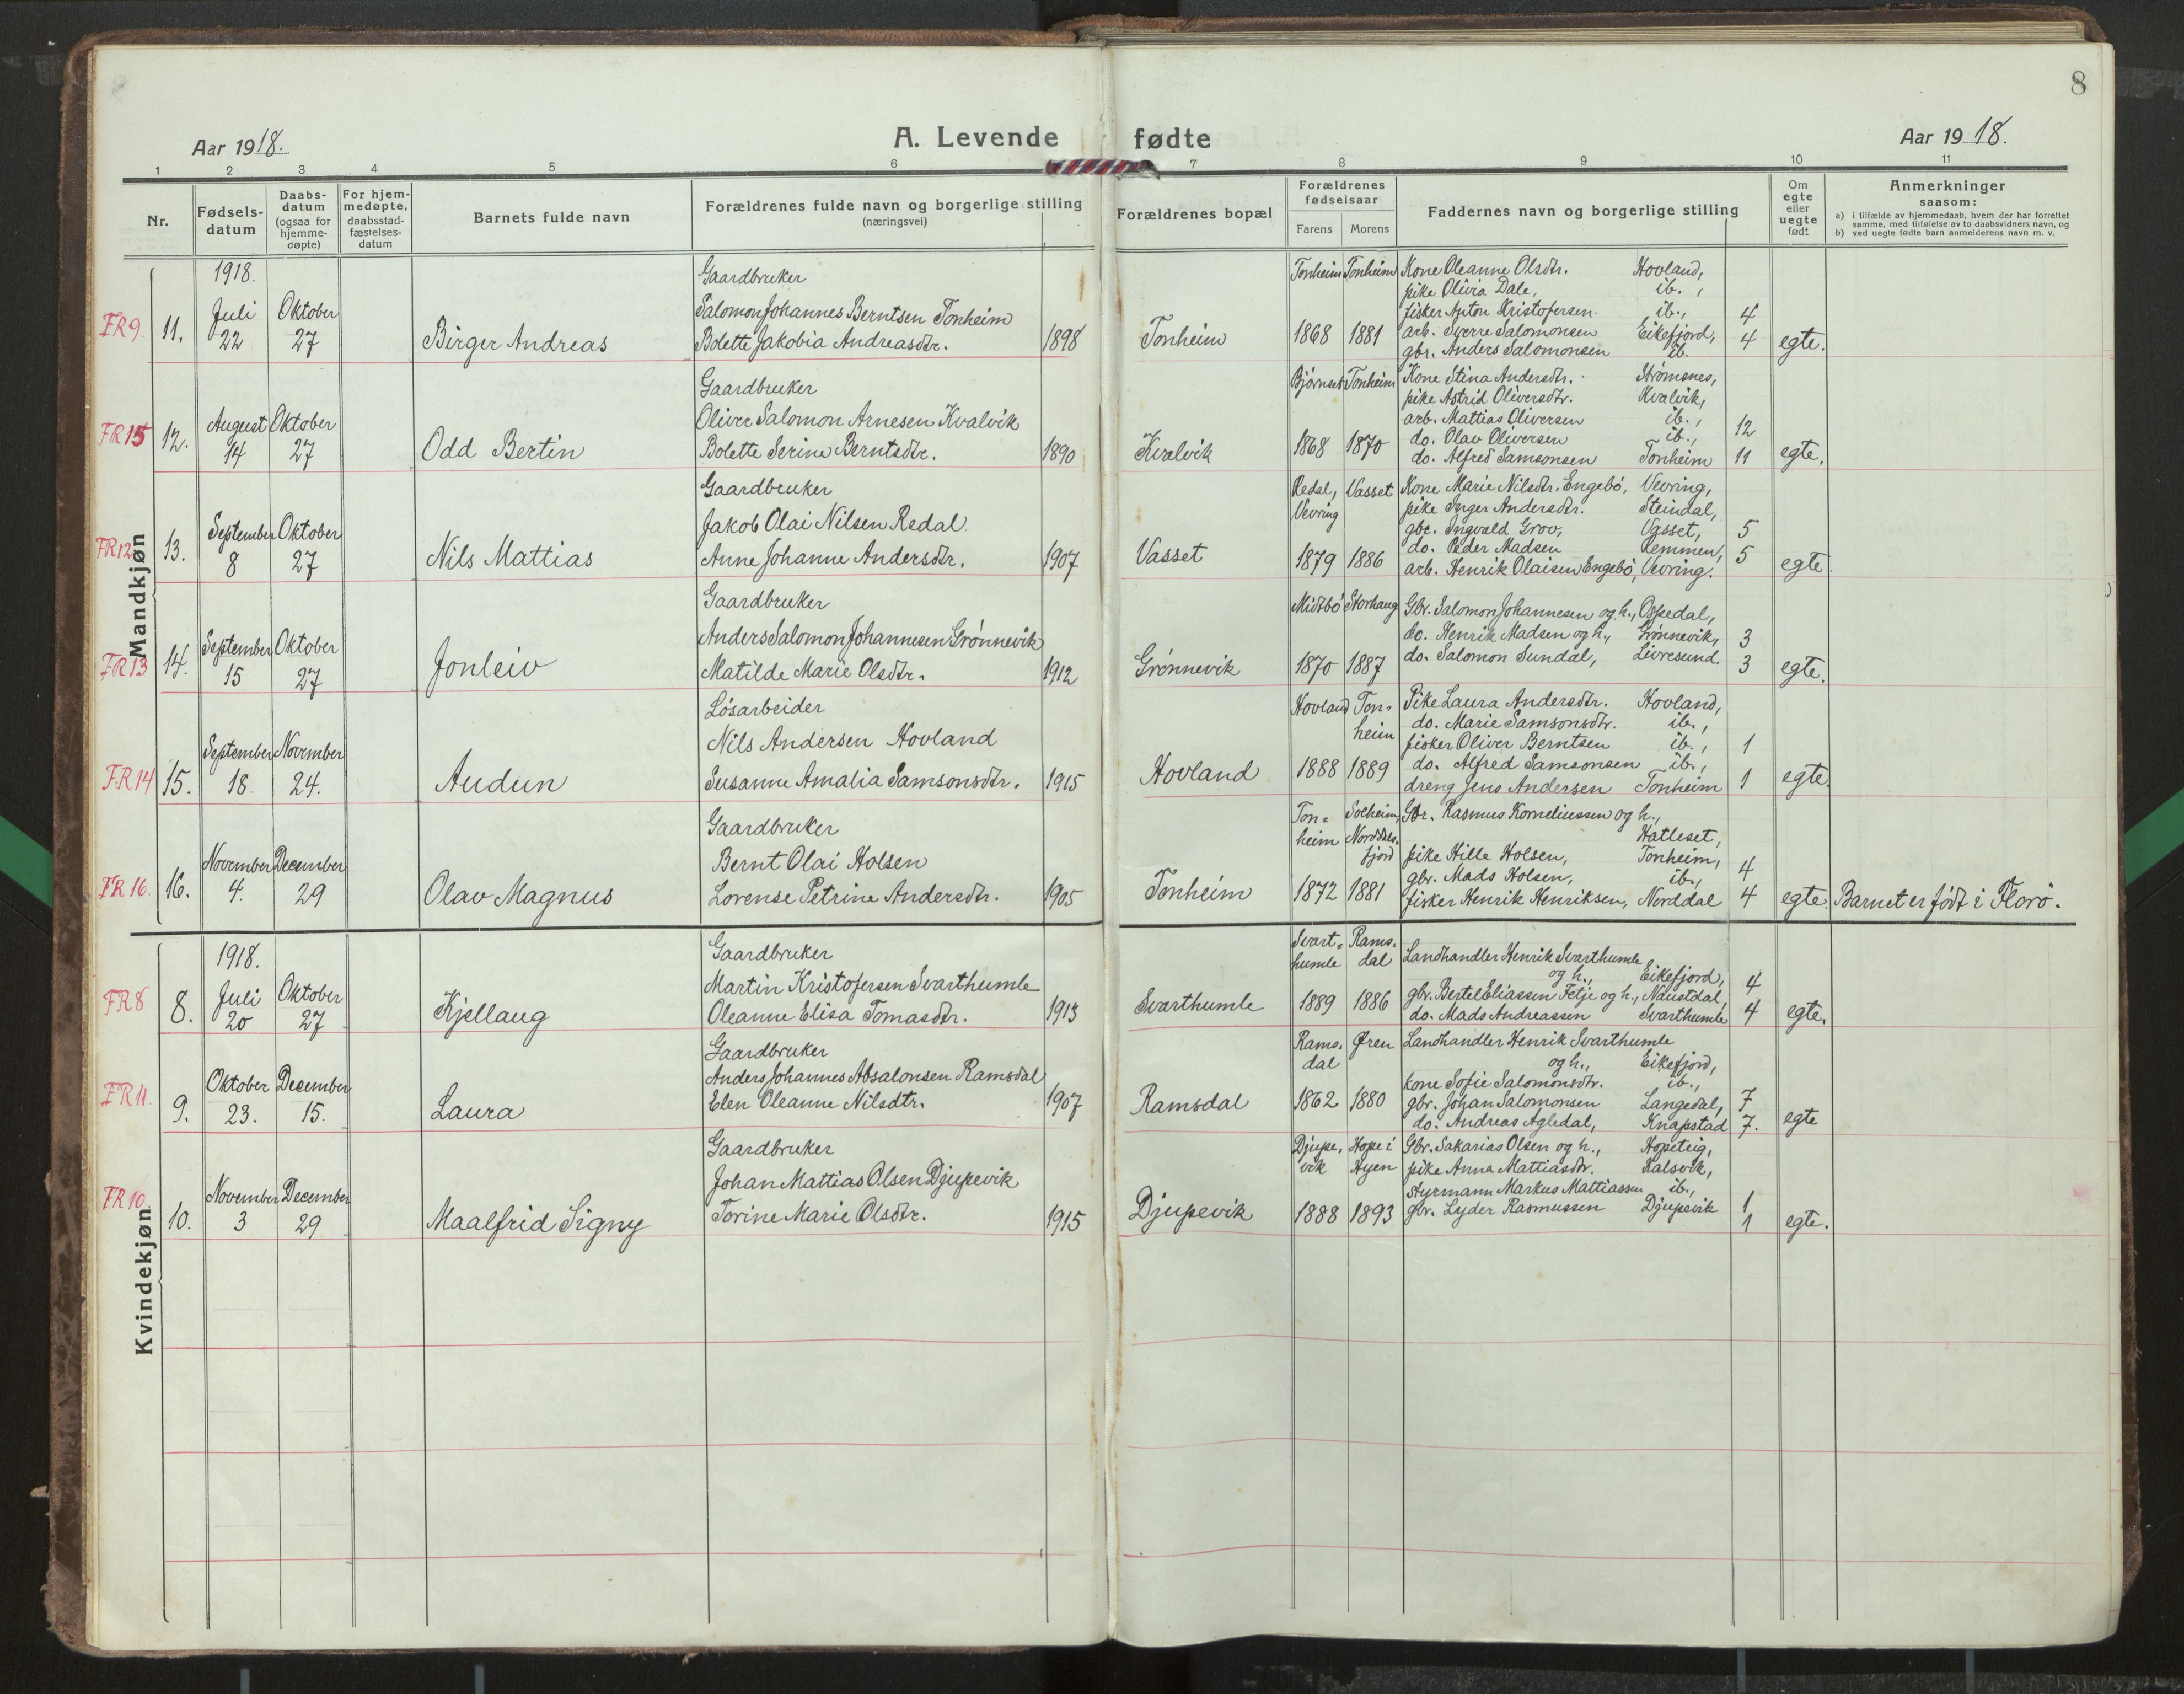 8
Aar 1918.
A. Levende fødte
Aar 1918.
1 2 3 4 5 6 7 8 9 10 11
Nr.
Fødsels-
datum
Daabs-
datum
(ogsaa for
hjemme-
døpte)
For hjem-
medøpte,
daabsstad-
fæstelses-
datum
Barnets fulde navn
Forældrenes fulde navn og borgerlige stilling
(næringsvei)
Forældrenes bopæl
Forældrenes
fødselsaar
Farens Morens
Faddernes navn og borgerlige stilling
Om
egte
eller
uegte
født
Anmerkninger
saasom:
a) i tilfælde av hjemmedaab, hvem der har forrettet
samme, med tilføielse av to daabsvidners navn, og
b) ved uegte fødte barn anmelderens navn m. v.
Mandkjøn
FR9. 11.
1918.
Juli
22
Oktober
27
Birger Andreas
Gaardbruker
Salomon Johannes Berntsen Tonheim
Bolette Jakobia Andreasdtr. 1898
Tonheim
Tonheim Tonheim
1868 1881
Kone Oleanne Olsdtr. Hovland,
pike Olivia Dale, ib.,
fisker Anton Kristofersen. ib., 4
arb. Sverre Salomonsen Eikefjord, 4
gbr. Anders Salomonsen ib.
egte.
FR15 12.
August
14
Oktober
27
Odd Bertin
Gaardbruker
Oliver Salomon Arnesen Kvalvik
Bolette Serine Berntsdtr. 1890
Kvalvik
Bjørnset Tonheim
1868 1870
Kone Stina Andersdtr. Strømsnes,
pike Astrid Oliversdtr. Kvalvik,
arb. Mattias Oliversen ib., 12
do. Olav Oliversen ib.,
do. Alfred Samsonsen Tonheim 11
egte.
FR12 13.
September
8
Oktober
27
Nils Mattias
Gaardbruker
Jakob Olai Nilsen Redal
Anne Johanne Andersdtr. 1907
Vasset
Redal, Vasset
Vevring
1879 1886
Kone Marie Nilsdtr. Engebø, Vevring,
pike Inger Andersdtr. Steindal,
gbr. Ingvald Grov, Vasset, 5
do. Peder Madsen Remmen, 5
arb. Henrik Olaisen Engebø, Vevring.
egte.
FR13 14.
September
15
Oktober
27
Jonleiv
Gaardbruker
Anders Salomon Johannesen Grønnevik
Matilde Marie Olsdtr. 1912
Grønnevik
Midtbø Storhaug
1870 1887
Gbr. Salomon Johannesen og h., Ospedal,
do. Henrik Madsen og h., Grønnevik, 3
do. Salomon Sundal, Livresund. 3
egte.
FR14 15.
September
18.
November
24.
Audun
Løsarbeider
Nils Andersen Hovland
Susanne Amalia Samsonsdtr. 1915
Hovland
Hovland Ton=
heim
1888 1889
Pike Laura Andersdtr. Hovland,
do. Marie Samsonsdtr. ib.,
fisker Oliver Berntsen ib., 1
do. Alfred Samsonsen ib.,
dreng Jens Andersen Tonheim 1
egte.
FR16. 16.
November
4.
December
29
Olav Magnus
Gaardbruker
Bernt Olai Holsen
Lorense Petrine Andersdtr. 1905
Tonheim
Ton= Solheim,
heim Norddals-
fjord
1872 1881
Gbr. Rasmus Korneliussen og h.,
Hatleset,
pike Hille Holsen, Tonheim, 4
gbr. Mads Holsen, ib.,
fisker Henrik Henriksen, Norddal 4
egte. Barnet er født i Florø.
Kvindekjøn
FR8 8.
1918.
Juli
20
Oktober
27
Kjellaug
Gaardbruker
Martin Kristofersen Svarthumle
Oleanne Elisa Tomasdtr. 1913
Svarthumle
Svart= Rams=
humle dal
1889 1886
Landhandler Henrik Svarthumle
og h., Eikefjord, 4
gbr. Bertel Eliassen Fetje og h., Naustdal,
do. Mads Andreassen Svarthumle 4
egte.
FR11. 9.
Oktober
23.
December
15.
Laura
Gaardbruker
Anders Johannes Absalonsen Ramsdal
Elen Oleanne Nilsdtr. 1907
Ramsdal
Rams- Øren
dal
1862 1880
Landhandler Henrik Svarthumle
og h., Eikefjord,
kone Sofie Salomonsdtr. ib.,
gbr. Johan Salomonsen Langedal, 7
do. Andreas Agledal, Knapstad 7.
egte
FR10. 10.
November
3
December
29
Maalfrid Signy
Gaardbruker
Johan Mattias Olsen Djupevik
Torine Marie Olsdtr. 1915
Djupevik
Djupe, Hope i
vik Hyen
1888 1893
Gbr. Sakarias Olsen og h., Hopeteig,
pike Anna Mattiasdtr. Kalsvik,
styrmann Markus Mattiassen ib., 1
gbr. Lyder Rasmussen Djupevik 1
egte.